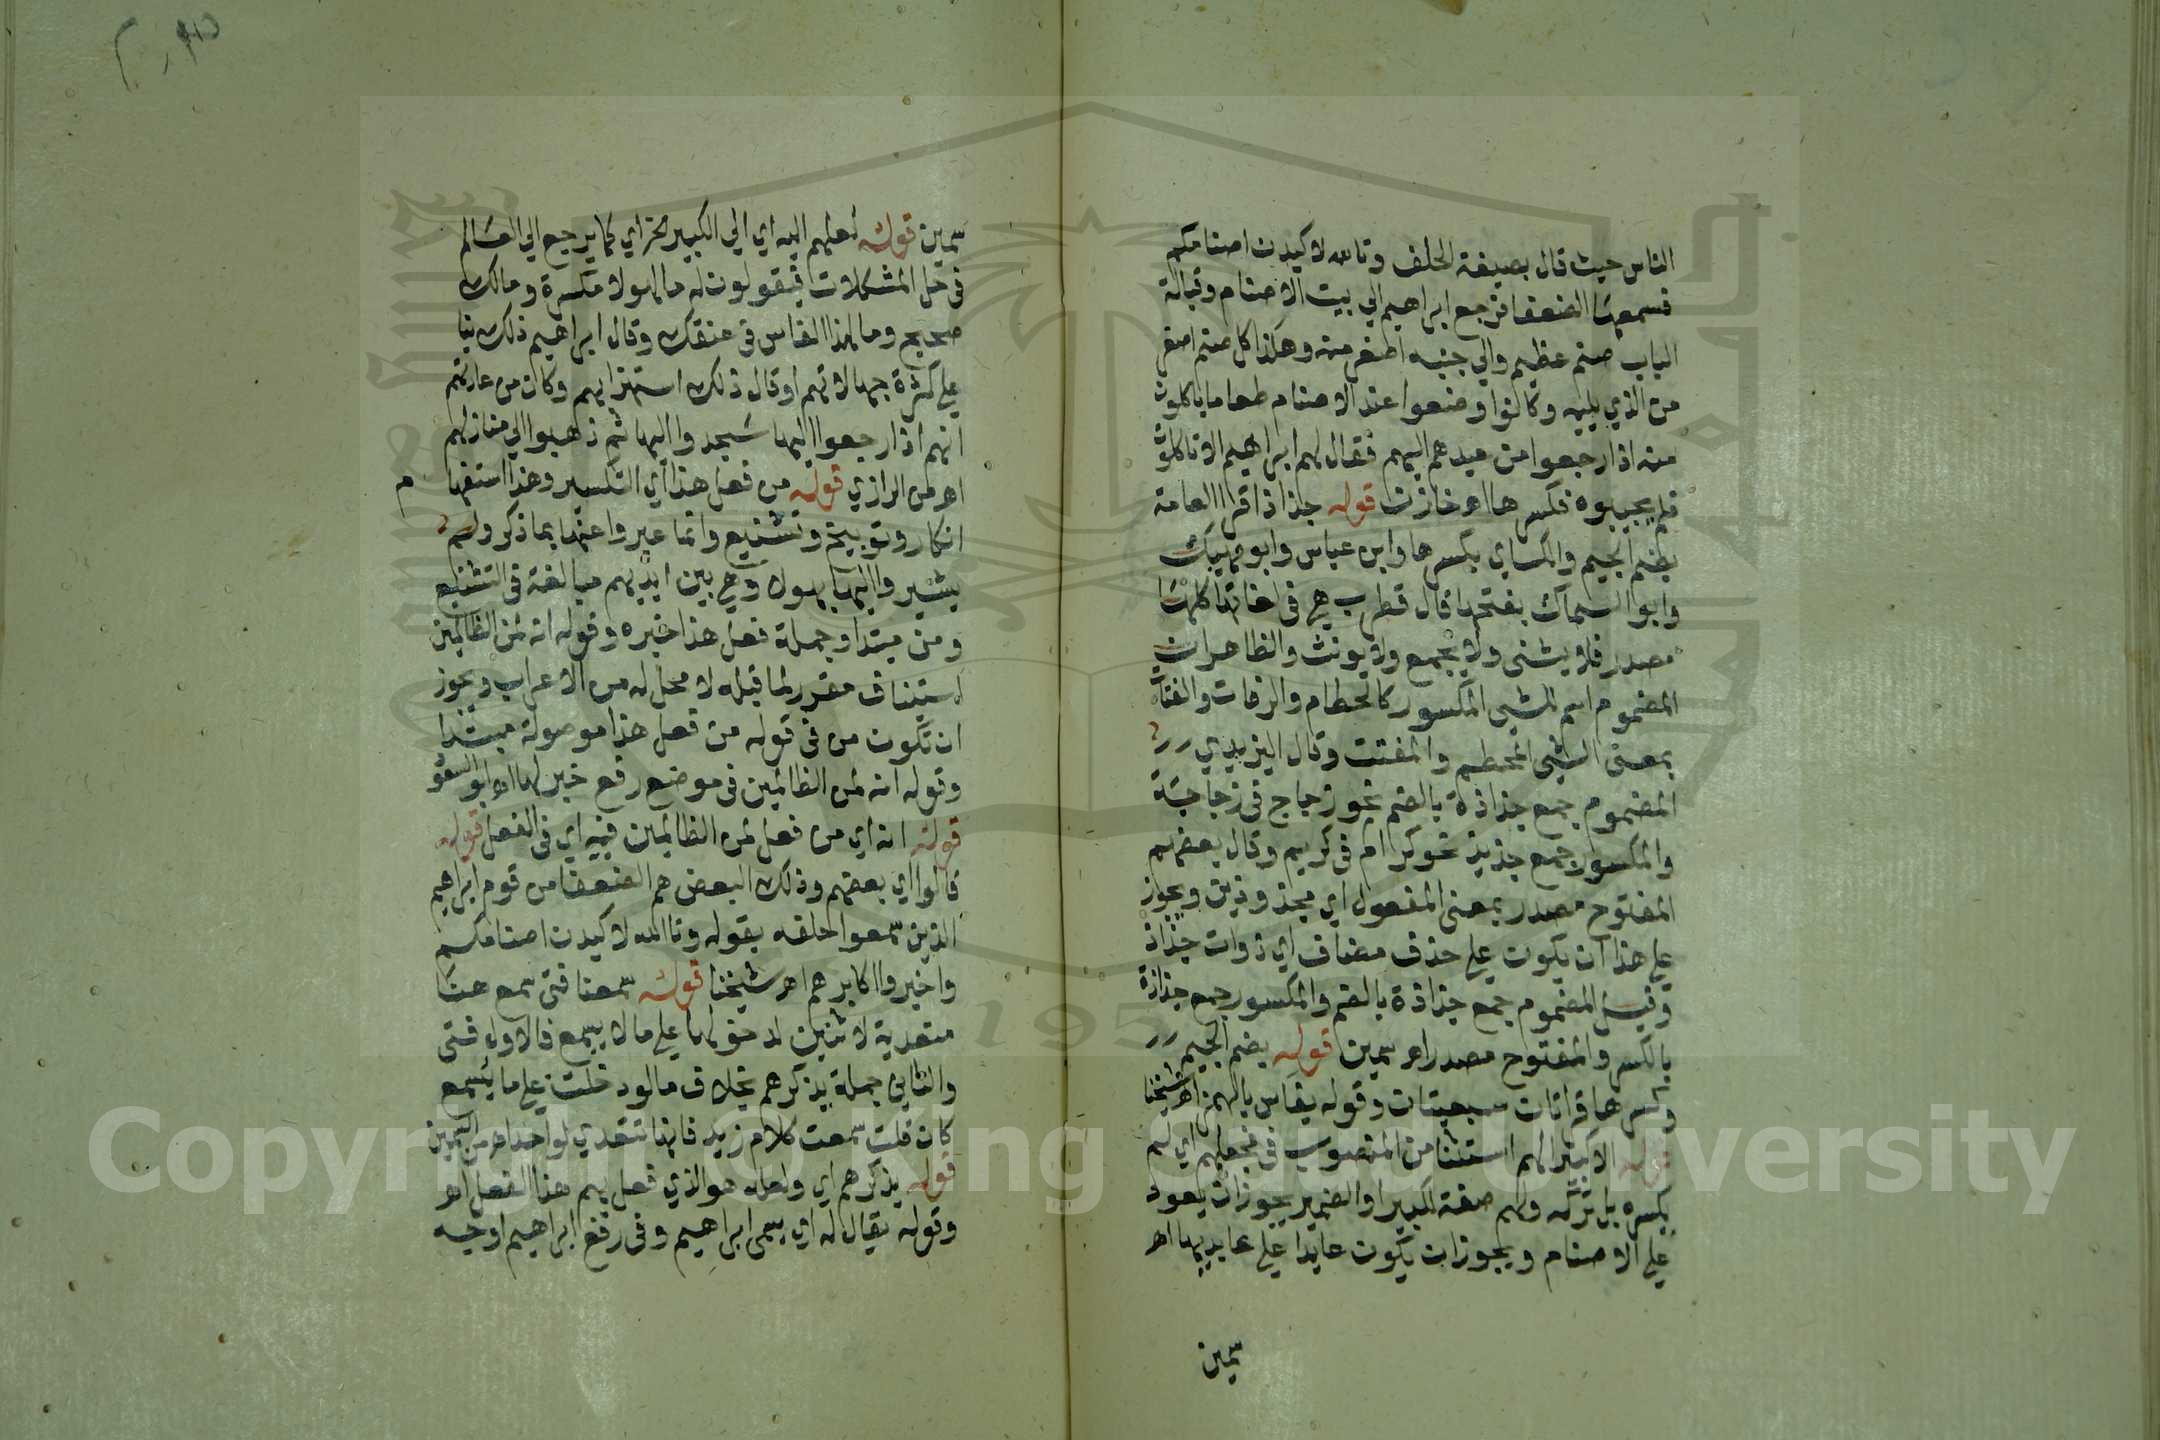 الناس حيث قال بصيغة الحلف وتالله لاكيدن اصنامكم
فسمعها الضعفا فرجع ابراهيم الي بيت الاصنام وقبالة
الباب صنم عظيم والي جنبه اصغر منه وهكذا كل صنم اصغر
من الذي يليه وكانوا وضعوا عند الاصنام طعاما ياكلون
منه اذا رجعوا من عيدهم اليهم فقال لهم ابراهيم الا تاكلون
فلم يجيبوه فكسرها اهر خازن قوله جذاذا قرا العامة
بضم الجيم والكساي بكسرها وابن عباس وابو نهيك
وابو السماك بفتحها قال قطرب هي في لغاتها كلها
مصدر فلا يثنى ولا يجمع ولا يونث والظاهر ان
المضموم اسم للشي المكسور كالحطام والرفات والفتات
بمعنى الشي المحطم والمفتت وقال اليزيدي
المضموم جمع جذاذة بالضم نحو زجاج في زجاجة
والمكسور جمع جذيذ نحو كرام في كريم وقال بعضهم
المفتوح مصدر بمعنى المفعول اي مجذوذين ويجوز
علي هذا ان يكون علي حذف مضاف اي ذوات جذاذ
وقيل المضموم جمع جذاذة بالضم والمكسور جمع جذاذة
بالكسر والمفتوح مصدر اهر سمين قوله بضم الجيم
وكسرها قراتان سبعيتان وقوله بفاس بالهمز اهر شيخنا
قوله الا كبيرا لهم استثنا من المنصوب في فجعلهم اي لم
يكسره بل تركه ولهم صفة لكبيرا والضمير يجوز ان يعود
علي الاصنام ويجوز ان يكون عايدا علي عابديها اهر
سمين
سمين قوله لعلهم اليه اي الي الكبير الخ اي كما يرجع الي العالم
في حل المشكلات فيقولون له ما لهولا مكسرة ومالك
صحيح وما لهذا الفاس في عنقك وقال ابراهيم ذلك بنا
علي كثرة جهالاتهم او قال ذلك استهزا بهم وكان من عادتهم
انهم اذا رجعوا اليها سجدوا اليها ثم ذهبوا الي منازلهم
اهر من الرازي قوله من فعل هذا اي التكسير وهذا استفها م
انكار وتوبيخ وتشنيع وانما عبروا عنها بما ذكر ولم
يشيروا اليها بهولا وهي بين ايديهم مبالغة في التشنيع
ومن مبتدا وجملة فعل هذا خبره وقوله انه لمن الظالمين
استيناف مقرر لما قبله لا محل له من الاعراب ويجوز
ان تكون من في قوله من فعل هذا موصولة مبتدا
وقوله انه لمن الظالمين في موضع رفع خبر لها اهر ابو السعود
قوله انه اي من فعل لمن الظالمين فيه اي في الفعل قوله
قالوا اي بعضهم وذلك البعض هم الضعفا من قوم ابراهيم
الذين سمعوا حلفه بقوله وتالله لاكيدن اصنامكم
واخبروا اكابرهم اهر شيخنا قوله سمعنا فتى سمع هنا
متعدية لاثنين لدخولها علي ما لا يسمع فالاول فتى
والثاني جملة يذكرهم بخلاف ما لو دخلت علي ما يسمع
كان قلت سمعت كلام زيد فانها تتعدي لواحد اهر من السمين
قوله يذكرهم اي ولعله هو الذي فعل بهم هذا الفعل اهر
وقوله يقال له اي يسمى ابراهيم وفي رفع ابراهيم اوجه
Copyright © King Saud University